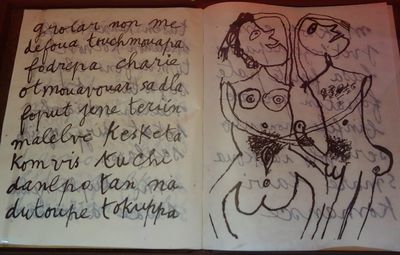 grotar non me
defoua truchmouapa
fodrepa charie
otmouavouar sadla
forut jene terien
malelve kesketa
komvis kuche
danlpo tan na
dutoupe tokuppa